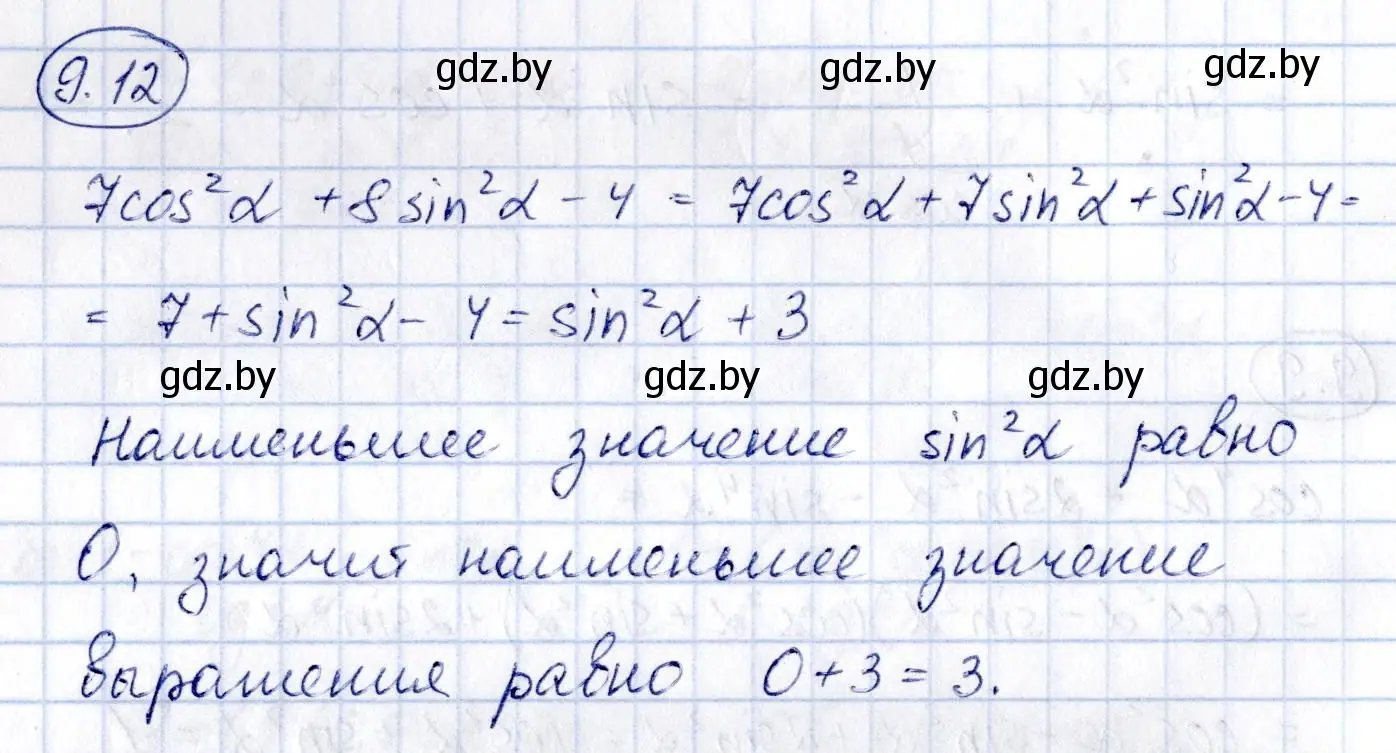 9.12
gdz.by gdz.by gdz.by
7cos²α + 8sin²α - 4 = 7cos²α + 7sin²α + sin²α - 4 =
= 7 + sin²α - 4 = sin²α + 3
gdz.by gdz.by gdz.by
Наименьшее значение sin²α равно
0, значит наименьшее значение
выражения равно 0 + 3 = 3.